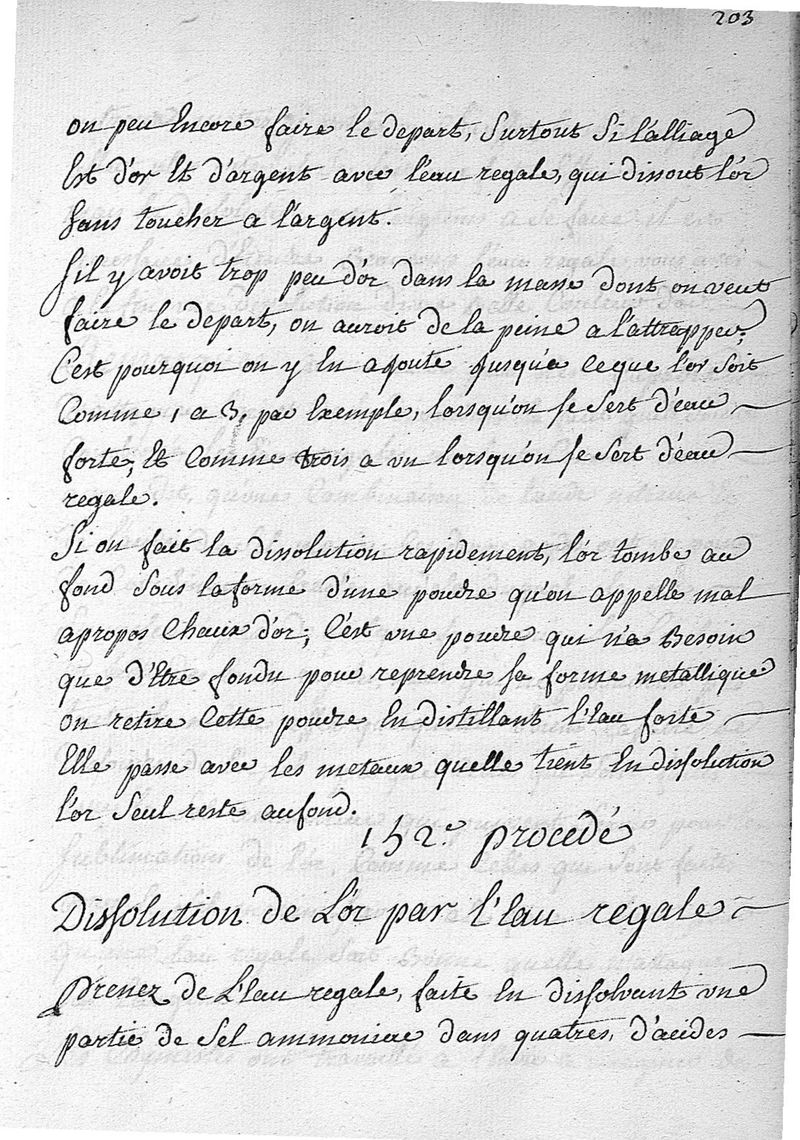 203
on peu Encore faire le depart, surtout Si l'alliage
Est d'or Et d'argent avec l'eau regale, qui dissout l'or
Sans toucher a l'argent.
S'il y avoit trop peu d'or dans la masse dont on veut
faire le depart, on auroit de la peine a l'attrapper,
C'est pourquoi on y En ajoute jusqu'a ceque l'or soit
Comme 1 a 3, par Exemple, lorsqu'on se sert d'eau
forte, Et Comme trois a un lorsqu'on se sert d'eau
regale.
Si on fait la dissolution rapidement, l'or tombe au
fond sous la forme d'une poudre qu'on appelle mal
apropos Chaux d'or; C'est une poudre qui n'a Besoin
que d'Etre fondu pour reprendre sa forme metallique
on retire Cette poudre En distillant l'Eau forte
Elle passe avec les metaux quelle tient En dissolution
l'or seul reste aufond.
152.e procedé
Dissolution de L'or par l'Eau regale
prenez de L'Eau regale, faite En dissolvant une
partie de Sel ammoniac dans quatres, d'acides